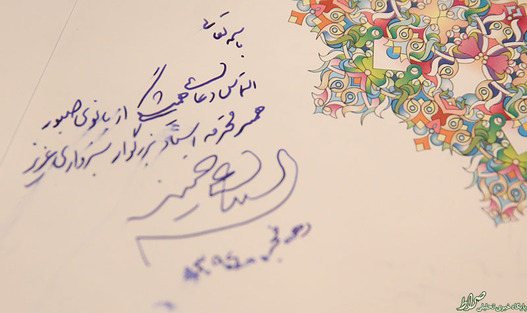 باسمه تعالی
التماس دعای همیشگی از بانوی صبور
همسر محترمه استاد بزرگوار سبزواری عزیز
دهه فجر
پایگاه خبری تحلیلی صراط